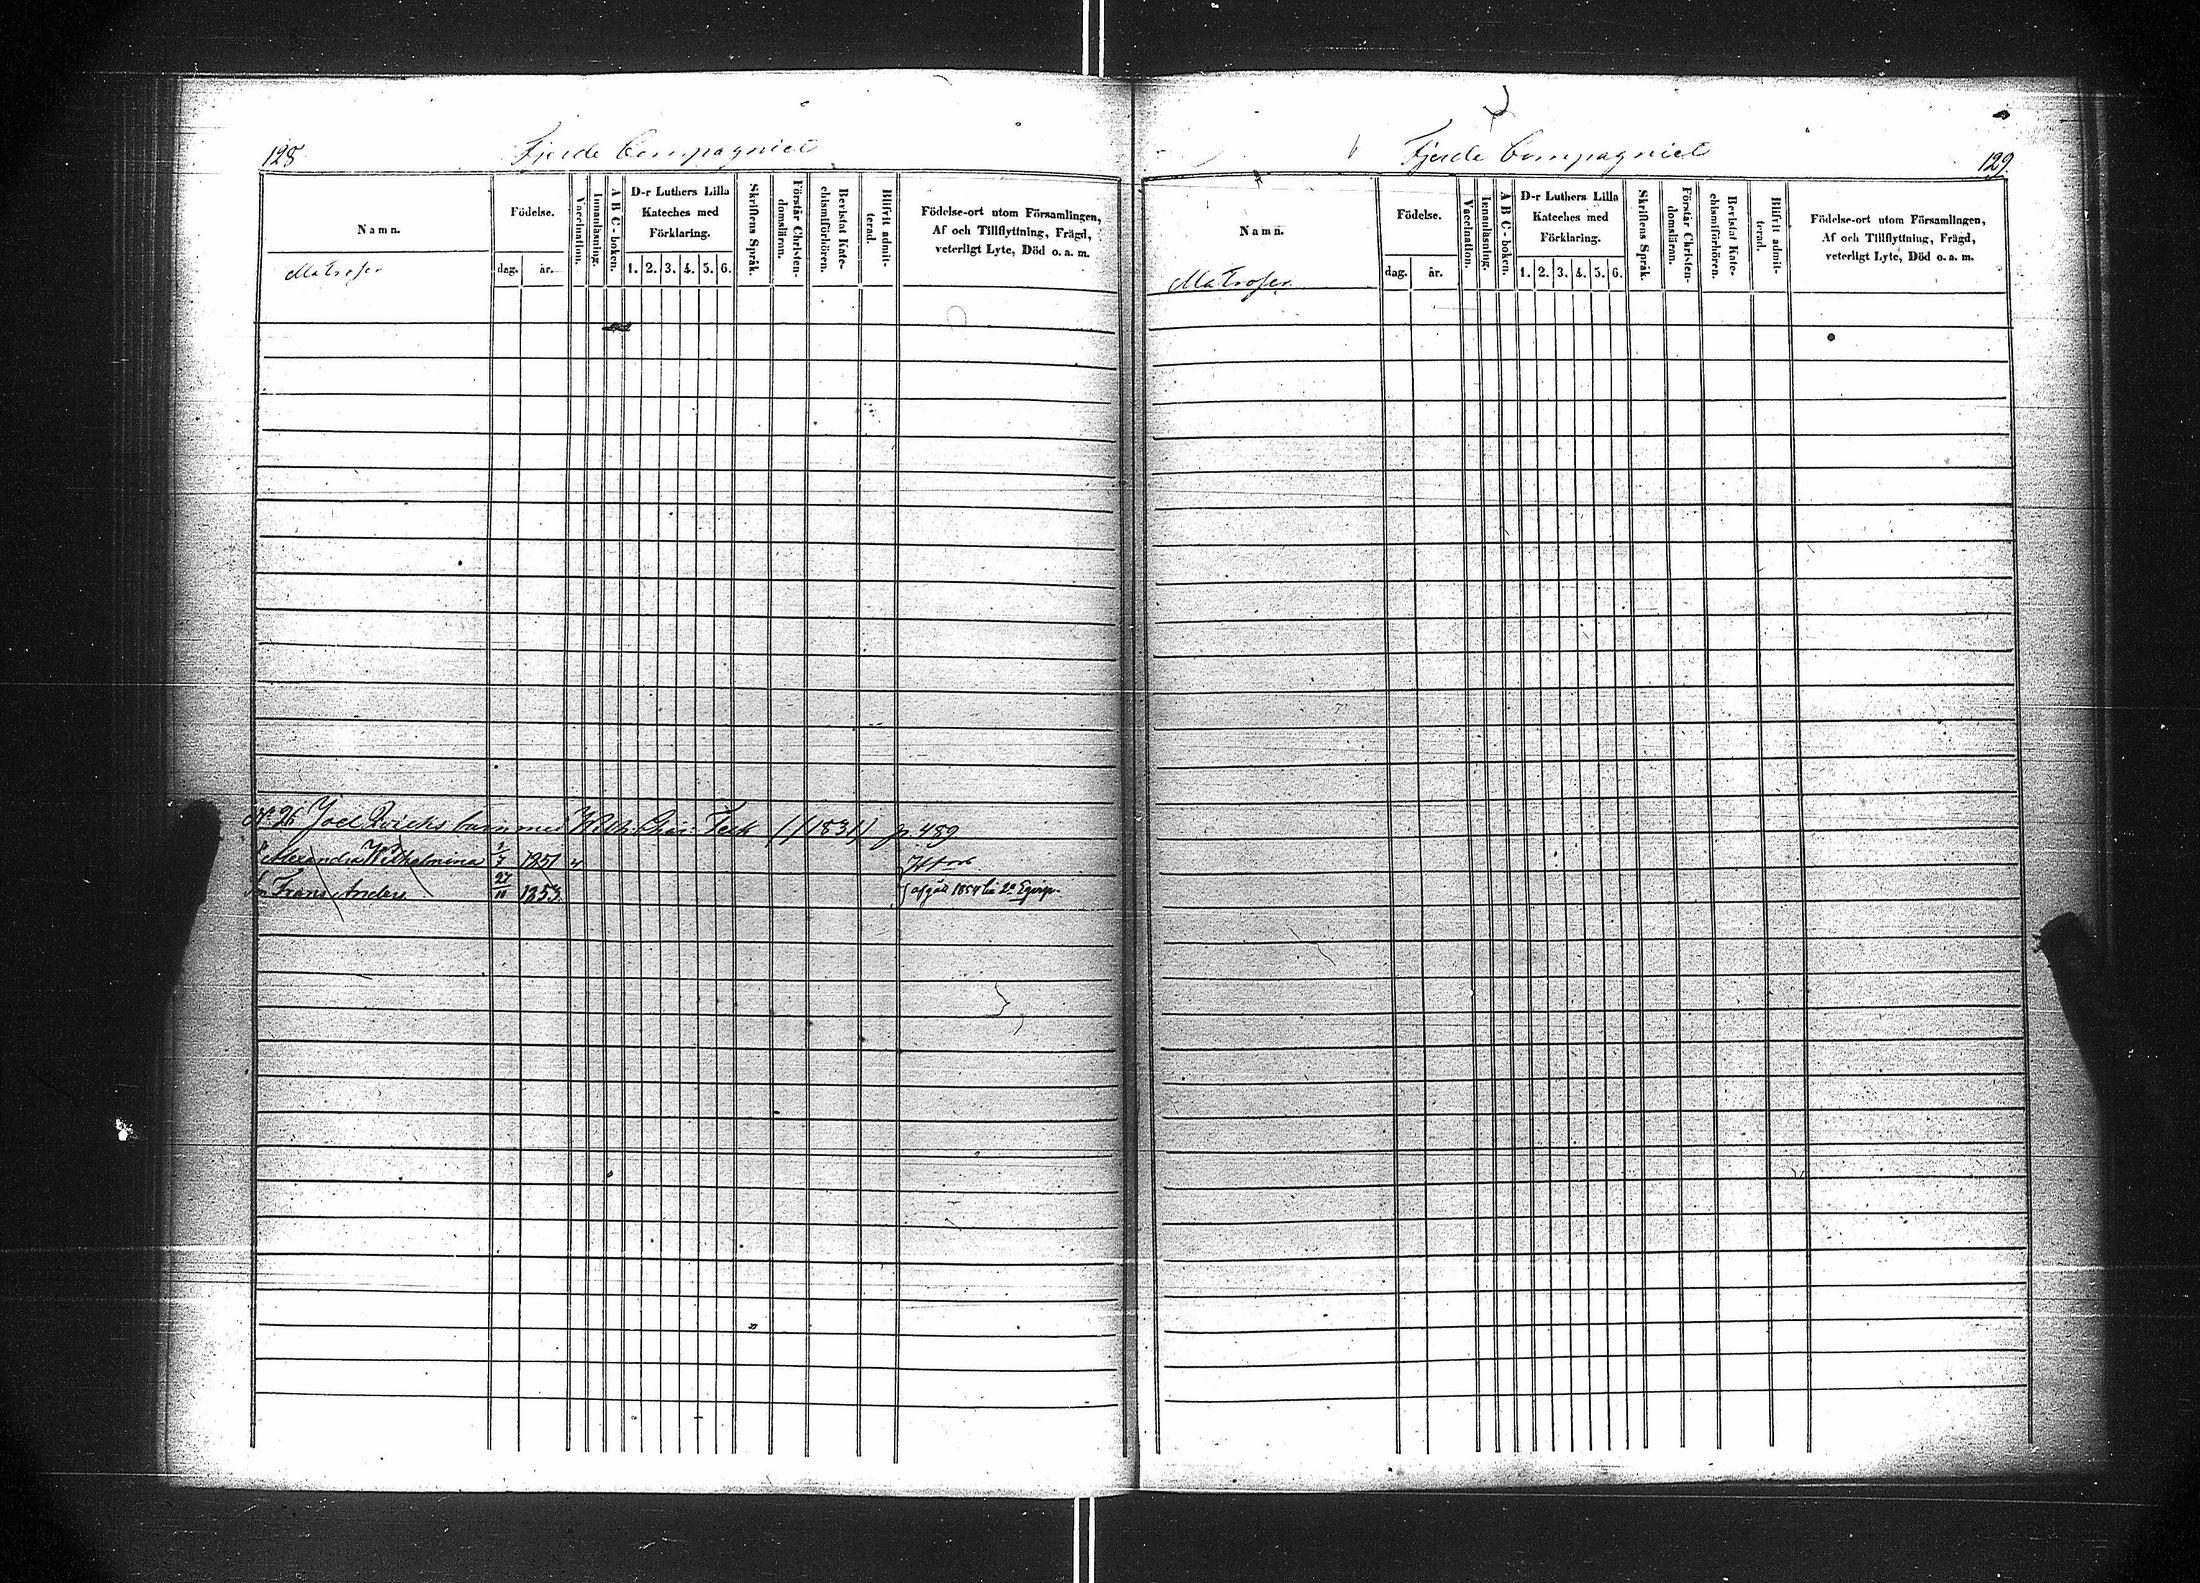 128
Fjerde Compagniet
Namn.
Födelse.
dag.
år.
Vaccination.
Innanläsning.
A B C - boken.
D-r Luthers Lilla
Kateches med
Förklaring.
1. 2. 3. 4. 5. 6.
Skriftens Språk.
Förstår Christen-
domsläran.
Bevistat Kate-
chismiförhören.
Blifvit admit-
terad.
Födelse-ort utom Församlingen,
Af och Tillflyttning, Frägd,
veterligt Lyte, Död o. a. m.
Matroser
No 26 Joel barn med p. 489
Alexandra Wilhelmina 2/7 1851 v
Sn Frans Anders 27/11 1853 afgått 1854
Fjerde Compagniet
129.
Namn.
Födelse.
dag.
år.
Vaccination.
Innanläsning.
A B C - boken.
D-r Luthers Lilla
Kateches med
Förklaring.
1. 2. 3. 4. 5. 6.
Skriftens Språk.
Förstår Christen-
domsläran.
Bevistat Kate-
chismiförhören.
Blifvit admit-
terad.
Födelse-ort utom Församlingen,
Af och Tillflyttning, Frägd,
veterligt Lyte, Död o. a. m.
Matroser